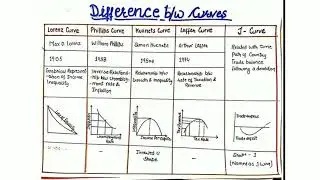 Difference b/w Curves
Lorenz Curve
Phillips Curve
Kuznets Curve
Laffer Curve
J - Curve
Max O Lorenz
William Phillips
Simon Kuznets
Arthur Laffer
Related with Curve
Path of Country
Trade balance
following a
1905
1958
1950s
1974
Graphical Represent
-ation of Income
Inequality
Inverse Relations
b/w Unemploy
-ment rate &
Inflation
Relationship b/w
Growth & Inequality
Relationship b/w
rate of Taxation &
Revenue
Income Per capita
Trade surplus
Trade deficit
Inverted U
Shape
Shape - J
(Named as J curve)